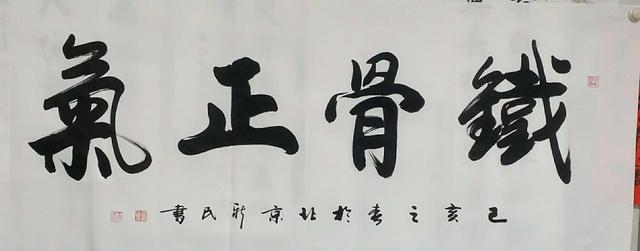 鐵骨正氣
己亥之春於北京新民書